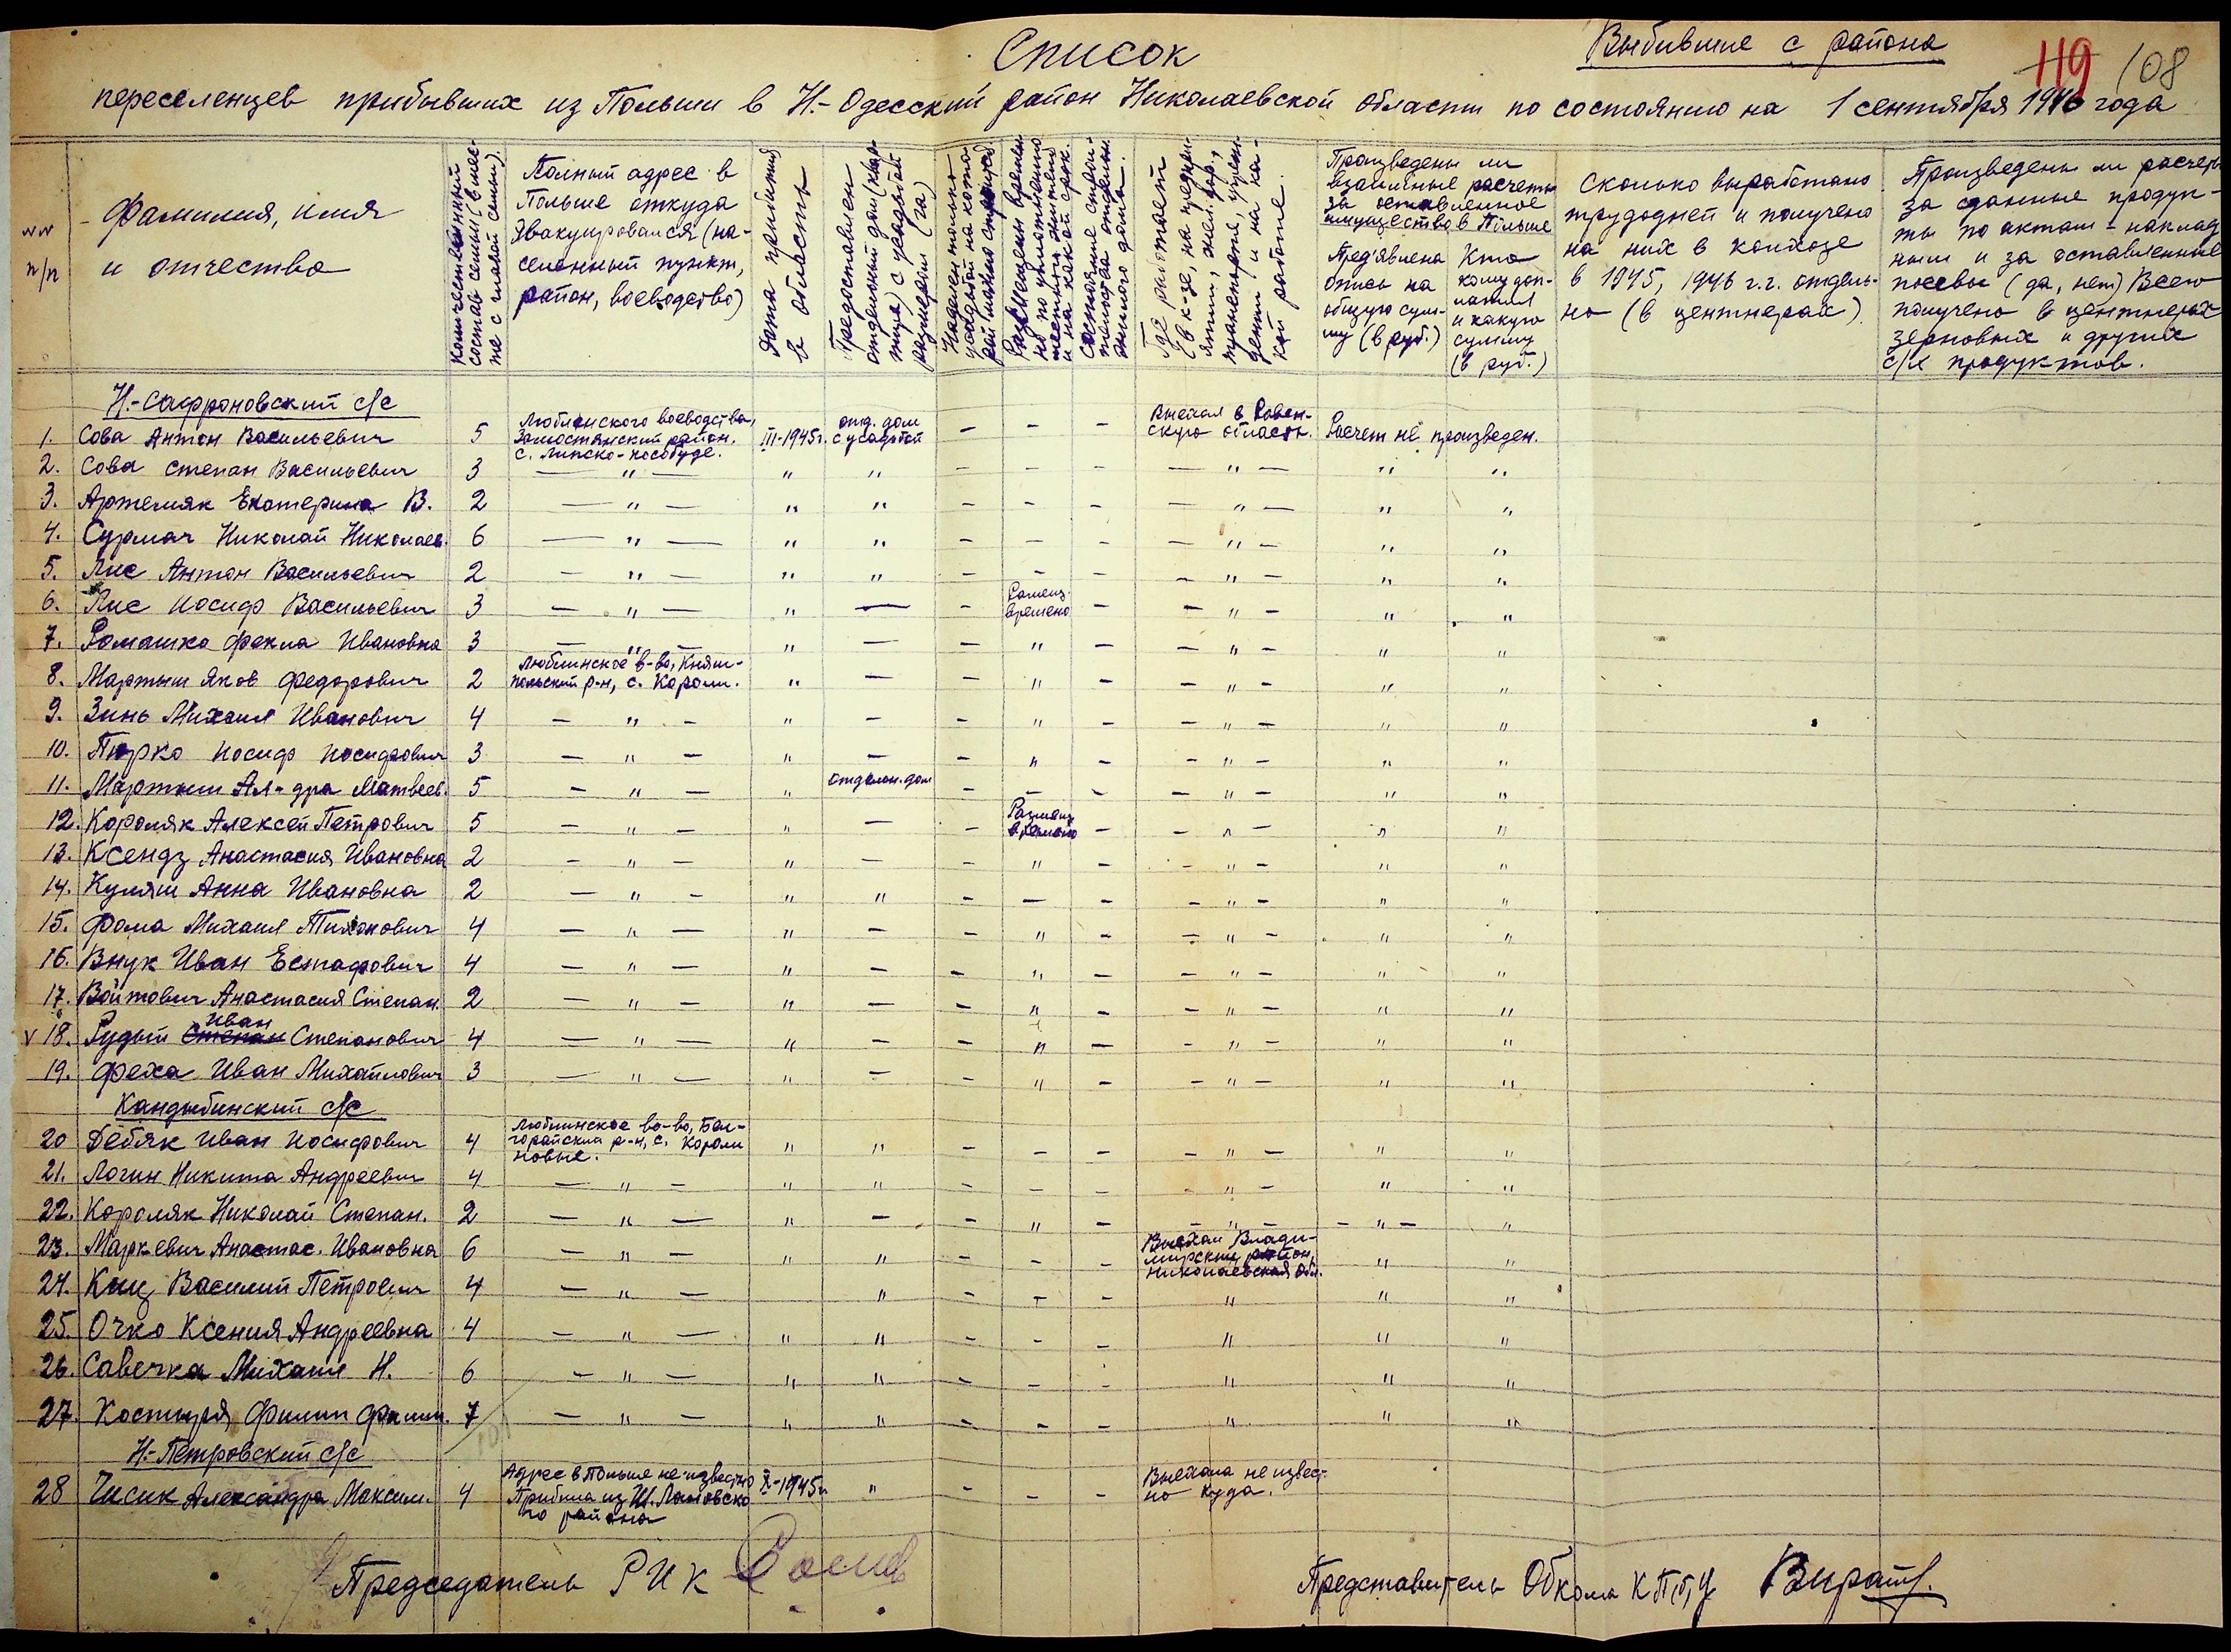 Список
Выбившие с района
119 108
переселенцев прибывших из Польши в Н.-Одесский район Николаевской области по состоянию на 1 сентября 1946 года
№№ п/п
Фамилия, имя
и отчество
Количественный
состав семьи (в мес-
те с главой семьи).
Полный адрес в
Польше откуда
эвакуировался (на-
селенный пункт,
район, воеводство)
Дата прибытия
в область
Предоставлен
отдельный дом (квар-
тира) с усадьбой
размером (га)
Наделен только
усадьбой на кото-
рой можно строиться
Размещены времен-
но по уплотнению
местных жителей
и на какой срок.
Состояние строи-
тельства отдельн.
жилого дома.
Где работает
(в к-зе, на предпри-
ятии, жел. дор.,
и на ка-
кой работе.
Произведены ли
взаимные расчеты
за оставленное
имущество в Польше
Пред'явлена
опись на
общую сум-
му (в руб.)
Кто
кому доп-
латил
и какую
сумму
(в руб.)
Сколько выработано
трудодней и получено
на них в колхозе
в 1945, 1946 г.г. отдель-
но (в центнерах)
Произведены ли расчеты
за сданные продук-
ты по актам - наклад
ным и за оставленные
посевы (да, нет) Всего
получено в центнерах
зерновых и других
с/х продуктов.
Н.-Сафроновский с/с
1. Сова Антон Васильевич 5 Люблинского воеводства, Замостянский район. с. Липско-Кособуде. III-1945г. отд. дом с усадьбой - - - Выехал в Ровен-скую область. Расчет не произведен.
2. Сова Степан Васильевич 3 — " — " " - - - — " — " "
3. Артемяк Екатерина В. 2 — " — " " - - - — " — " "
4. Сурмач Николай Николаев. 6 — " — " " - - - — " — " "
5. Лис Антон Васильевич 2 — " — " " - - - — " — " "
6. Лис Иосиф Васильевич 3 — " — " — - Размещ. времено - — " — " "
7. Ромашко Фекла Ивановна 3 — " — " — - " - — " — " "
8. Мартыш Яков Федорович 2 Люблинское в-во, Княж-польский р-н, с. Короли. " — - " - — " — " "
9. Зинь Михаил Иванович 4 — " — " — - " - — " — " "
10. Пирко Иосиф Иосифович 3 — " — " — - " - — " — " "
11. Мартыш Ал-дра Матвеев. 5 — " — " отделон. дом - - - — " — " "
12. Короляк Алексей Петрович 5 — " — " — - Размещ. времено - — " — " "
13. Ксендз Анастасия Ивановна 2 — " — " — - " - — " — " "
14. Куляш Анна Ивановна 2 — " — " " - — - — " — " "
15. Фома Михаил Тихонович 4 — " — " — - " - — " — " "
16. Внук Иван Естафович 4 — " — " — - " - — " — " "
17. Войтович Анастасия Степан. 2 — " — " — - " - — " — " "
v 18. Рудый Степан Иван Степанович 4 — " — " — - " - — " — " "
19. Феха Иван Михайлович 3 — " — " — - " - — " — " "
Кандыбинский с/с
20 Дебяк Иван Иосифович 4 Люблинское во-во, Бел-горайский р-н, с. Короли новые. " " - - - — " — " "
21. Логин Никита Андреевич 4 — " — " " - - - " — " "
22. Короляк Николай Степан. 2 — " — " — - " - — " — — " — "
23. Маркевич Анастас. Ивановна 6 — " — " " - - - Выехал Влади-мирский район, Николаевская обл. " "
24. Киц Василий Петрович 4 — " — " - - - " " "
25. Очко Ксения Андреевна 4 — " — " " - - - " " "
26. Савечка Михаил Н. 6 — " — " " - - - " " "
27. Костыря Филип Филип. 7 — " — " " - - - " " "
101
Н.-Петровский с/с
28 Чисик Александра Максим. 4 Адрес в Польше не известно Прибыла из Ш. Лановско го района X-1945г. " - - - Выехала не извест-но куда.
Председатель РИК
Представитель Обкома КП(б)У